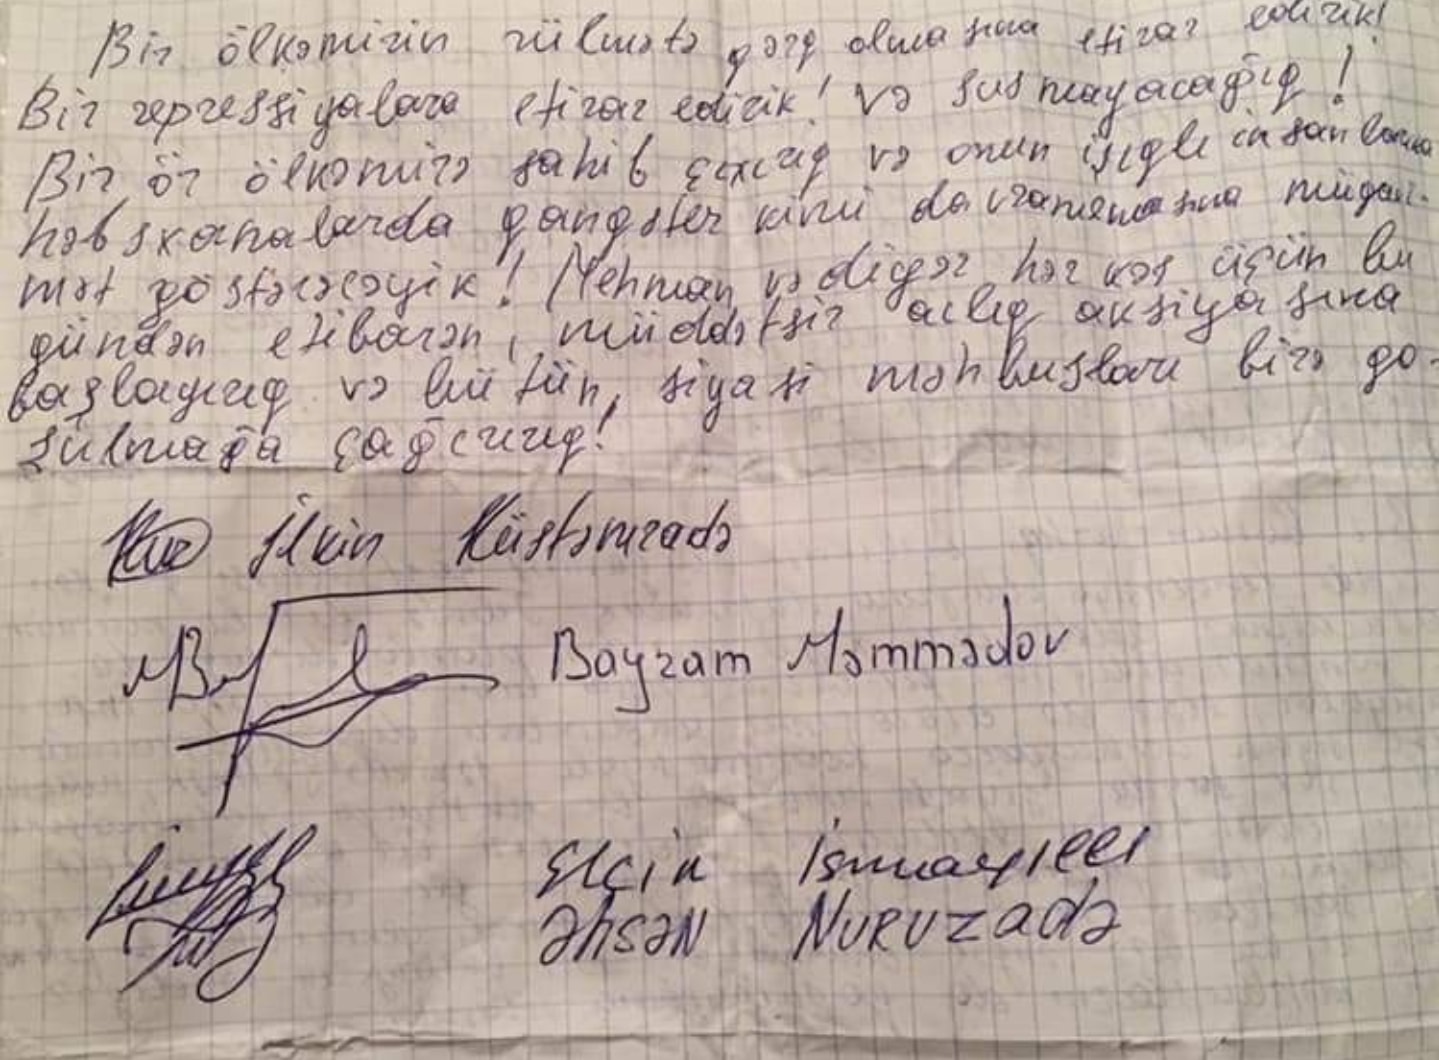 Biz ölkəmizin zülmətə qərq olmasına etiraz edirik!
Biz repressiyalara etiraz edirik! Və susmayacağıq!
Biz öz ölkəmizə sahib çıxırıq və onun işıqlı insanlarına
həbsxanalarda qangster kimi davranılmasına müqavi-
mət göstərəcəyik! Mehman və digər hər kəs üçün bu
gündən etibarən, müddətsiz aclıq aksiyasına
başlayırıq və bütün, siyasi məhbusları bizə qo-
şulmağa çağırırıq!
İlkin Rüstəmzadə
Bayram Məmmədov
Elçin İsmayıllı
Əhsən NURUZadə